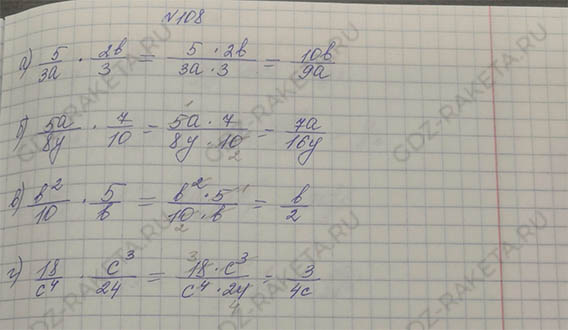 №108
а) 5/3a · 2b/3 = 5 · 2b/3a · 3 = 10b/9a
б) 5a/8y · 7/10 = 5a · 7/8y · 10 = 7a/16y
1 2
в) b²/10 · 5/b = b² · 5/10 · b = b/2
1 2
г) 18/c⁴ · c³/24 = 18 · c³/c⁴ · 24 = 3/4c
3 4
GDZ-RAKETA.RU
GDZ-RAKETA.RU
GDZ-RAKETA.RU
GDZ-RAKETA.RU
GDZ-RAKETA.RU